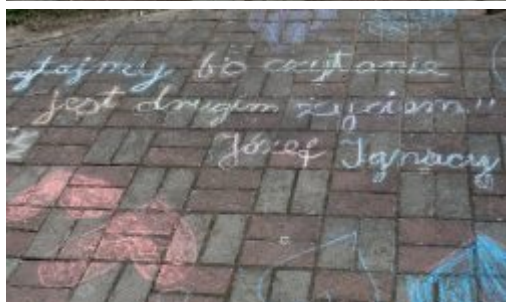 czytajmy bo czytanie
jest drugim życiem"
Józef Ignacy